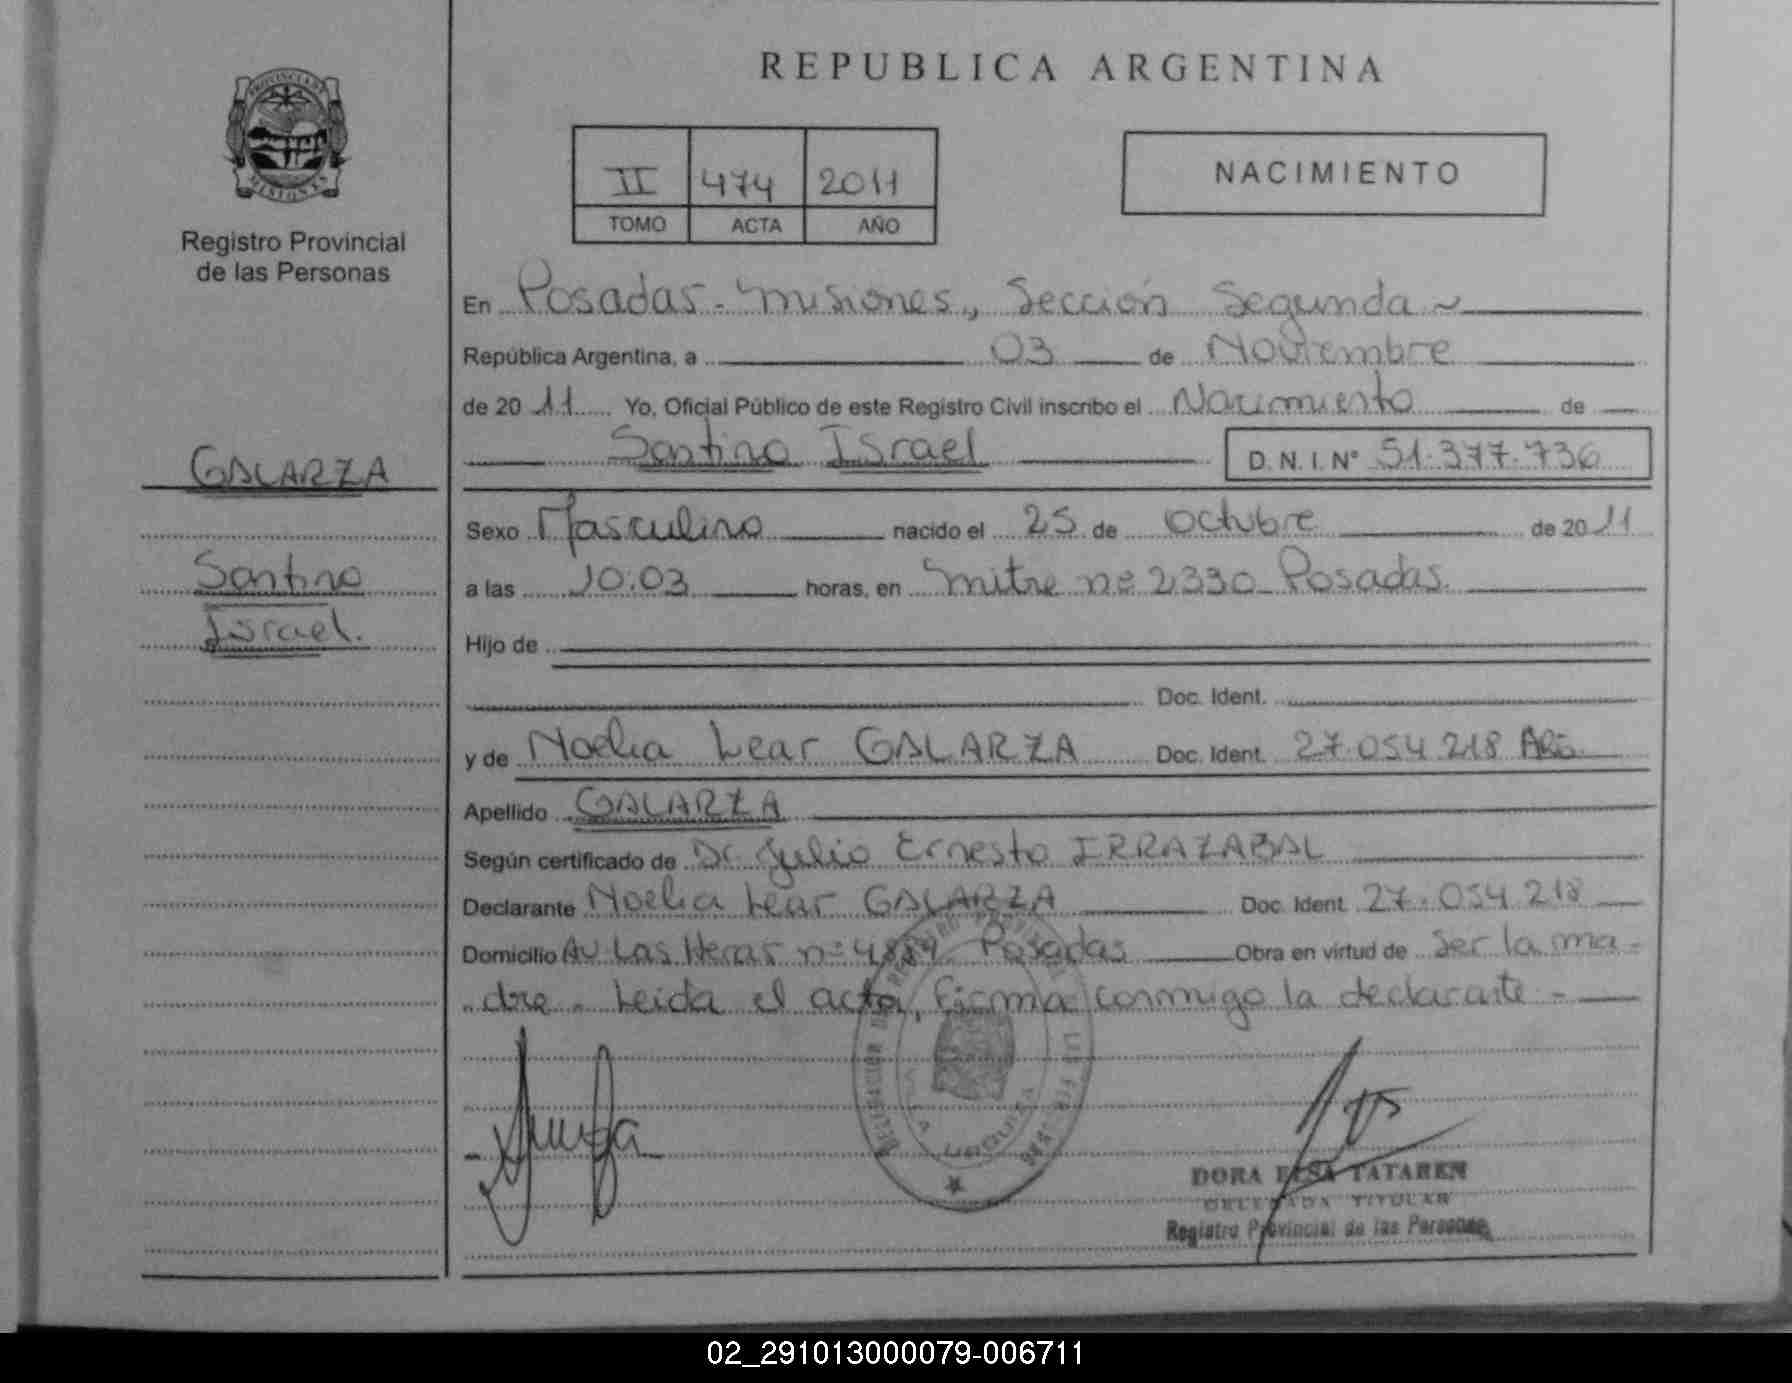 REPUBLICA ARGENTINA
PROVINCIA DE
MISIONES
Registro Provincial
de las Personas
II 474 2011
TOMO ACTA AÑO
NACIMIENTO
En Posadas - Misiones, Sección Segunda
República Argentina, a 03 de Noviembre
de 2011 Yo, Oficial Público de este Registro Civil inscribo el Nacimiento de
Santino Israel D.N.I.N° 51.377.736
GALARZA
Santino
Israel.
Sexo Masculino nacido el 25 de Octubre de 2011
a las 10:03 horas, en Mitre nº 2330 Posadas.
Hijo de
Doc. Ident.
y de Noelia Lear GALARZA Doc. Ident. 27.054.218 ARG.
Apellido GALARZA
Según certificado de Dr. Julio Ernesto IRRAZABAL
Declarante Noelia Lear GALARZA Doc. Ident. 27.054.218
Domicilio Av Las Heras nº 4884 Posadas Obra en virtud de Ser la ma-
dre - Leida el acta, firma conmigo la declarante -
DELEGACION DEL REGISTRO PROVINCIAL DE LAS PERSONAS
VILLA URQUIZA
DORA ELSA TATAREN
DELEGADA TITULAR
Registro Provincial de las Personas
02_291013000079-006711